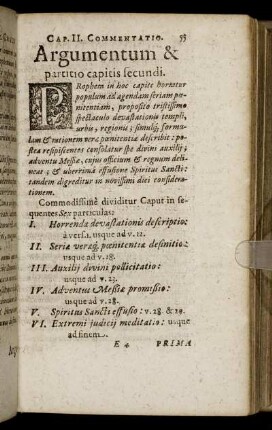 CAP. II. COMMENTATIO. 53
Argumentum &
partitio capitis secundi.
PRopheta in hoc capite hortatur
populum ad agendam seriam pœ-
nitentiam, proposito tristissimo
spectaculo devastationis templi,
urbis, regionis; simulq́; formu-
lam & rationem veræ pœnitentiæ describit: po-
stea resipiscentes consolatur spe divini auxilij;
adventu Messiæ, cujus officium & regnum deli-
neat; & uberrimâ effusione Spiritus Sancti:
tandem digreditur in novissimi diei conside-
rationem.
Commodissimè dividitur Caput in se-
quentes Sex particulas:
I. Horrenda devastationis descriptio:
à vers. 1. usque ad v. 12.
II. Seriæ veræq́; pœnitentiæ definitio:
usque ad v. 18.
III. Auxilij divini pollicitatio:
usque ad v. 23.
IV. Adventus Messiæ promissio:
usque ad v. 28.
V. Spiritus Sancti effusio: v. 28. & 29.
VI. Extremi judicij meditatio: usque
ad finem.
E 4 PRIMA